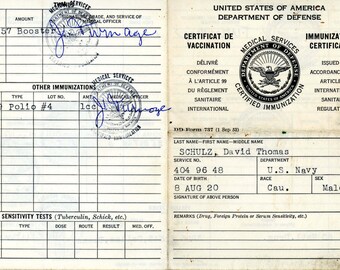 MEDICAL OFFICER
57 Booster J. Turnage
MEDICAL SERVICES
OTHER IMMUNIZATIONS
LOT NO.
Polio #4 1cc J. Turnage
MEDICAL SERVICES
SENSITIVITY TESTS (Tuberculin, Schick, etc.)
TYPE DOSE ROUTE RESULT WED. OFF.
UNITED STATES OF AMERICA
DEPARTMENT OF DEFENSE
CERTIFICAT DE
VACCINATION
DÉLIVRÉ
CONFORMÉMENT
À L'ARTICLE 99
DU RÈGLEMENT
SANITAIRE
INTERNATIONAL
MEDICAL SERVICES
DEPARTMENT OF DEFENSE
CERTIFIED IMMUNIZATION
IMMUNIZA
CERTIFIC
ISSUED
ACCORDAN
ARTICLE
SANITAR
REGULATI
DD FORM 737 (1 Sep 55)
LAST NAME—FIRST NAME—MIDDLE NAME
SCHULZ, David Thomas
SERVICE NO. DEPARTMENT
404 96 48 U.S. Navy
DATE OF BIRTH RACE
8 AUG 20 Cau. Mal
SIGNATURE OF ABOVE PERSON
REMARKS (Drug, Foreign Protein or Serum Sensitivity, etc.)